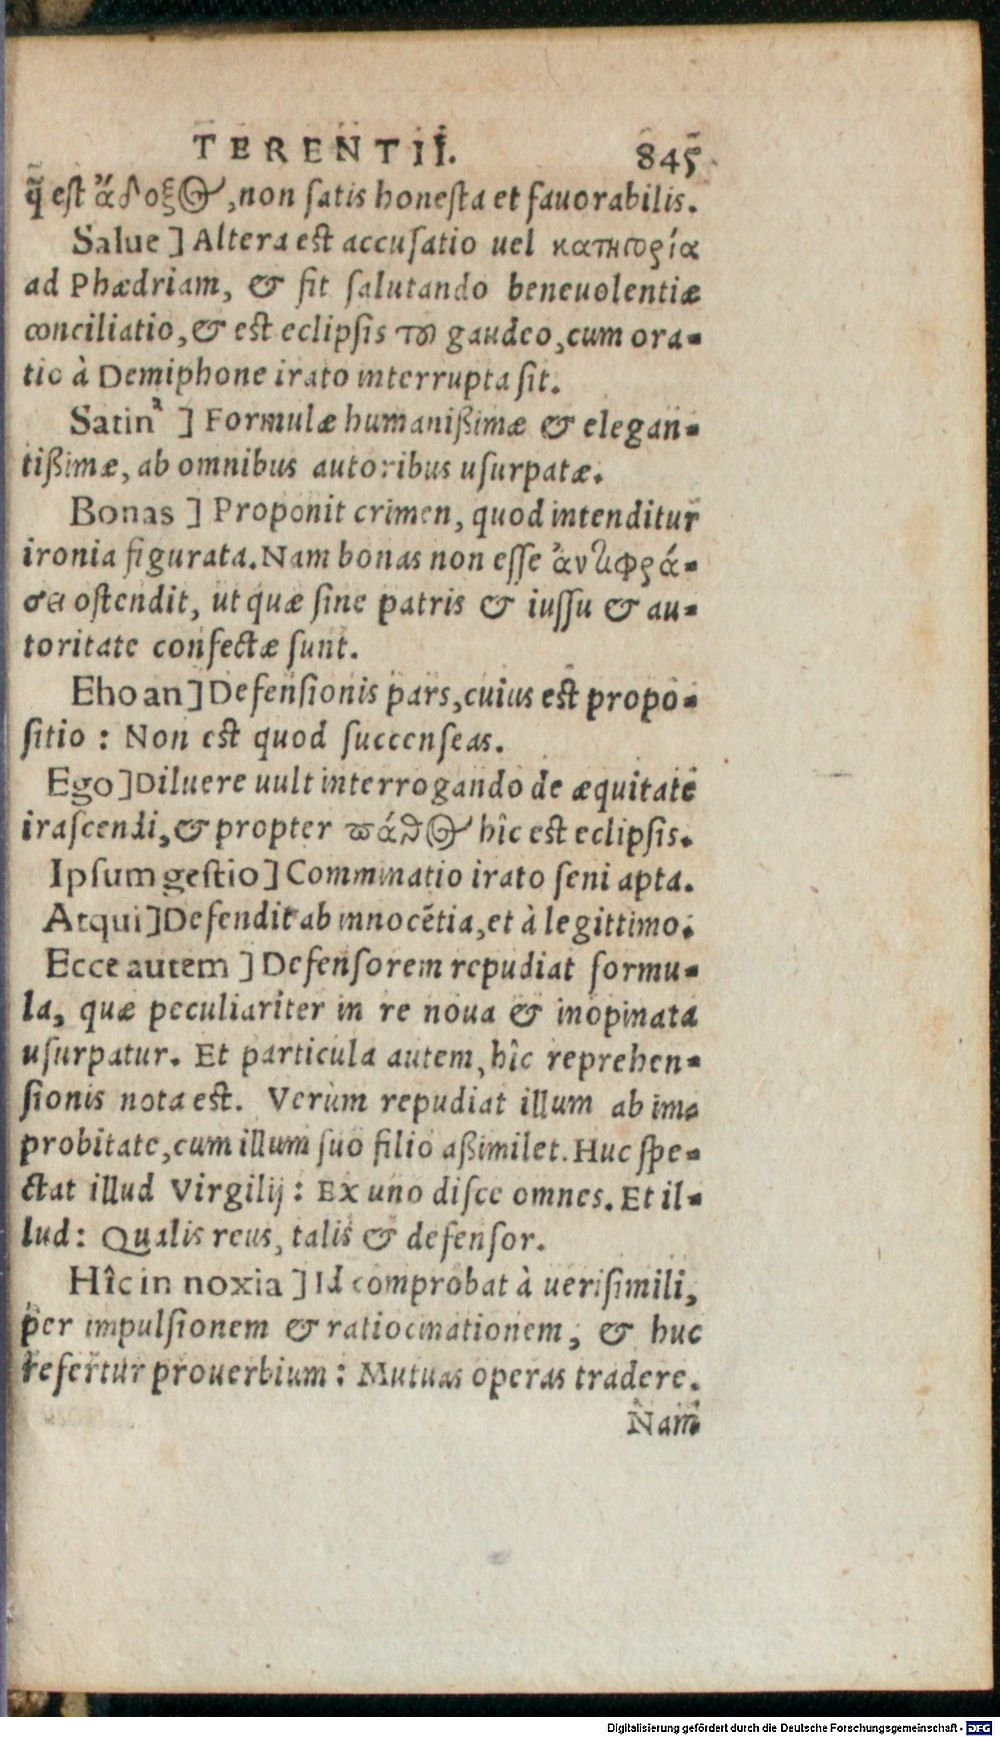 TERENTII. 845
q̃ est ἄδοξος, non satis honesta et fauorabilis.
Salue] Altera est accusatio uel κατηγορία
ad Phædriam, & fit salutando beneuolentiæ
conciliatio, & est eclipsis τοῦ gaudeo, cum ora-
tio à Demiphone irato interrupta sit.
Satin'] Formulæ humanißimæ & elegan-
tißimæ, ab omnibus autoribus usurpatæ.
Bonas] Proponit crimen, quod intenditur
ironia figurata. Nam bonas non esse ἀντιφρά-
σει ostendit, ut quæ sine patris & iussu & au-
toritate confectæ sunt.
Eho an] Defensionis pars, cuius est propo-
sitio : Non est quod succenseas.
Ego] Diluere uult interrogando de æquitate
irascendi, & propter πάθος hîc est eclipsis.
Ipsum gestio] Comminatio irato seni apta.
Atqui] Defendit ab innocẽtia, et à legittimo.
Ecce autem] Defensorem repudiat formu-
la, quæ peculiariter in re noua & inopinata
usurpatur. Et particula autem, hîc reprehen-
sionis nota est. Verùm repudiat illum ab im-
probitate, cum illum suo filio aßimilet. Huc spe-
ctat illud Virgilij : Ex uno disce omnes. Et il-
lud : Qualis reus, talis & defensor.
Hîc in noxia] Id comprobat à uerisimili,
per impulsionem & ratiocinationem, & huc
refertur prouerbium : Mutuas operas tradere.
Nam
Digitalisierung gefördert durch die Deutsche Forschungsgemeinschaft - DFG